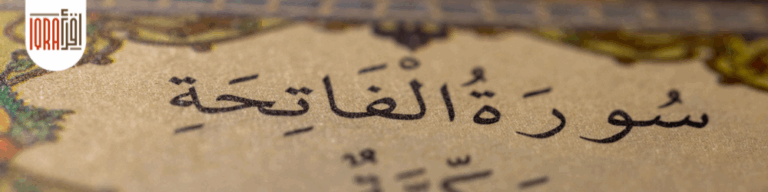 IQRA اقرأ
سُورَةُ الْفَاتِحَةِ